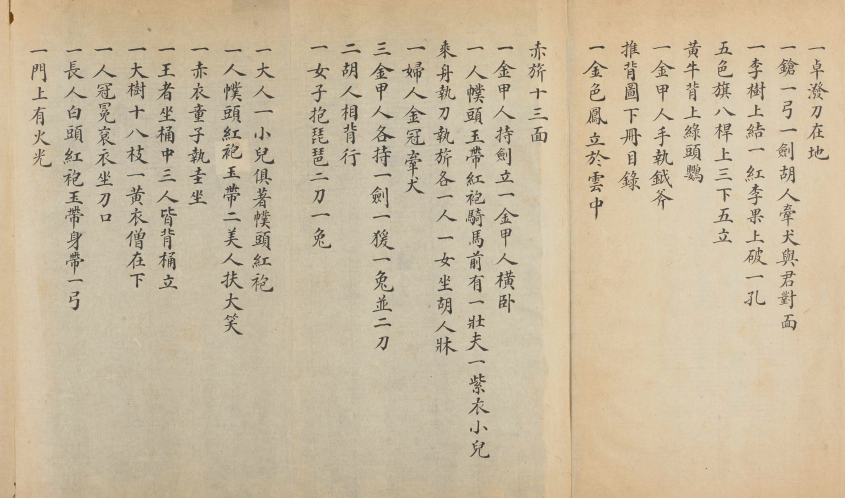 一卓潑刀在地
一鎗一弓一劍胡人牽犬與君對面
一李樹上結一紅李果上破一孔
五色旗八桿上三下五立
黃牛背上綠頭鸚
一金甲人手執鉞斧
推背圖下冊目錄
一金色鳳立於雲中
赤旂十三面
一金甲人持劍立一金甲人橫卧
一人幞頭玉帶紅袍騎馬前有一壯夫一紫衣小兒
乘舟執刀執旂各一人一女坐胡人牀
一婦人金冠牽犬
三金甲人各持一劍一猨一兔並二刀
二胡人相背行
一女子抱琵琶二刀一兔
一大人一小兒俱著幞頭紅袍
一人幞頭紅袍玉帶二美人扶大笑
一赤衣童子執圭坐
一王者坐桶中三人皆背桶立
一大樹十八枝一黃衣僧在下
一人冠冕衮衣坐刀口
一長人白頭紅袍玉帶身帶一弓
一門上有火光